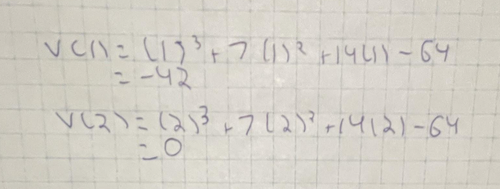 V(1) = (1)³ + 7(1)² + 14(1) - 64
= -42
V(2) = (2)³ + 7(2)² + 14(2) - 64
= 0